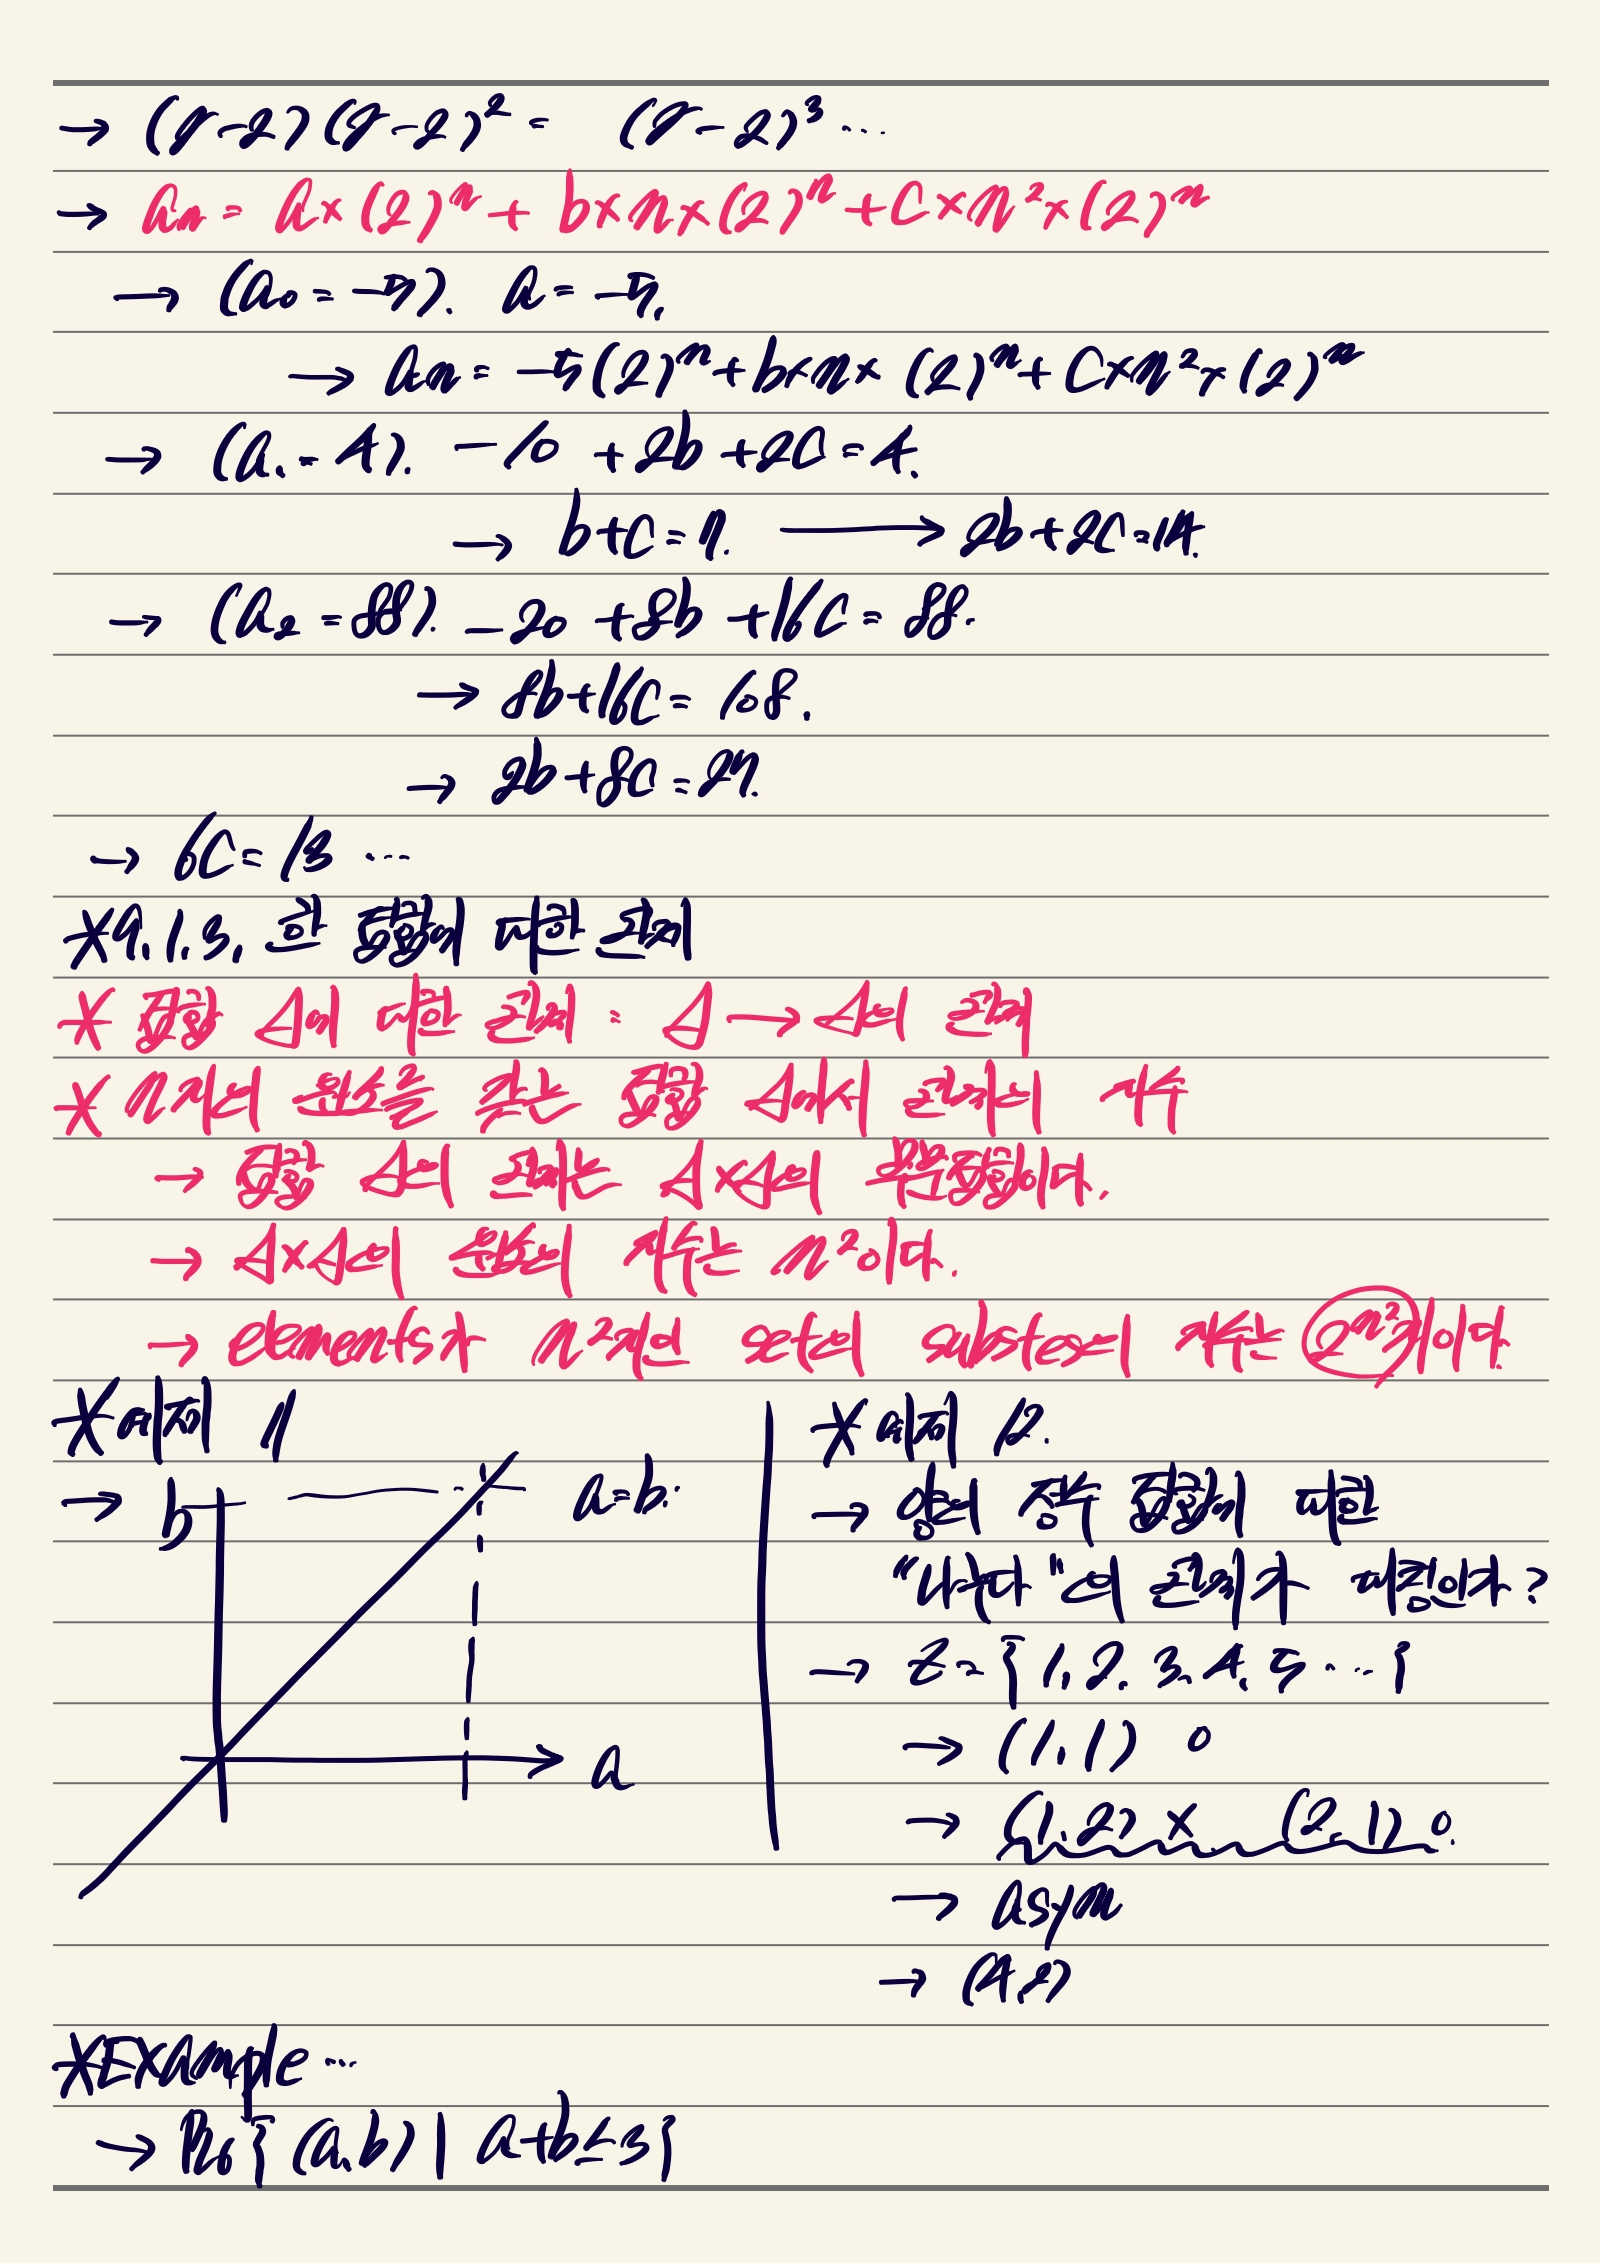 → (r-2)(r-2)² = (r-2)³ ...
→ an = a×(2)ⁿ + b×n×(2)ⁿ + c×n²×(2)ⁿ
→ (a₀ = -5). a = -5.
→ an = -5(2)ⁿ + b×n×(2)ⁿ + c×n²×(2)ⁿ
→ (a₁ = 4). -10 + 2b + 2c = 4.
→ b+c = 7. → 2b+2c = 14.
→ (a₂ = 88). -20 + 8b + 16c = 88.
→ 8b+16c = 108.
→ 2b+8c = 27.
→ 6c = 13 ...
*9.1.3. 한 집합에 대한 관계
* 집합 A에 대한 관계 : A → A의 관계
* n개의 원소를 갖는 집합 A에서 관계의 개수
→ 집합 A의 관계는 A×A의 부분집합이다.
→ A×A의 원소의 개수는 n²이다.
→ elements가 n²개인 set의 substes의 개수는 2ⁿ²개이다.
*예제 11
→ b a=b.
a
*예제 12.
→ 양의 정수 집합에 대한
"나눈다"의 관계가 대칭인가?
→ Z = {1, 2, 3, 4, 5 ... }
→ (1,1) o
→ (1,2) x (2,1) o.
→ asym
→ (4,2)
*Example ...
→ R₆ { (a,b) | a+b≤3 }